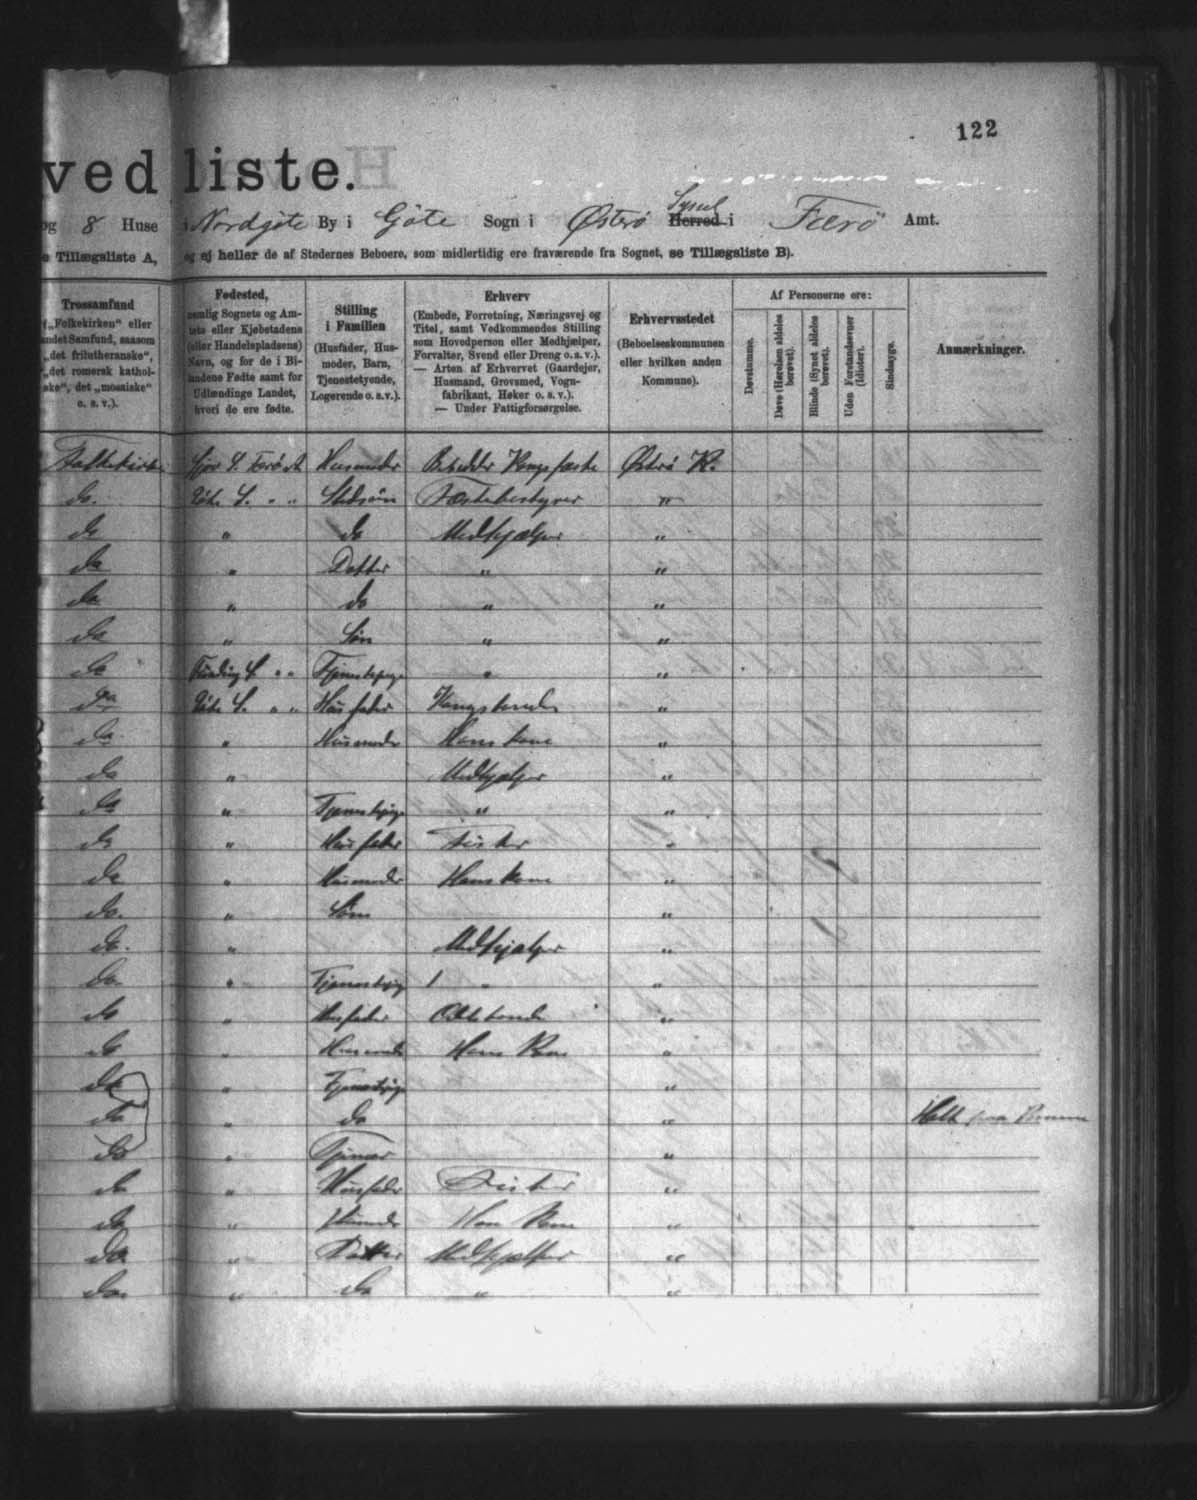 122
ved liste.
og 8 Huse i Nordgøte By i Gøte Sogn i Østerø Herred Sysel i Færø Amt.
e Tillægsliste A, og ej heller de af Stedernes Beboere, som midlertidig ere fraværende fra Sognet, se Tillægsliste B).
Trossamfund
(„Folkekirken“ eller
andet Samfund, saasom
„det frilutheranske“,
„det romersk kathol-
ske“, det „mosaiske“
o. s. v.).
Fødested,
nemlig Sognets og Am-
tets eller Kjøbstadens
(eller Handelspladsens)
Navn, og for de i Bi-
landene Fødte samt for
Udlændinge Landet,
hvori de ere fødte.
Stilling
i Familien
(Husfader, Hus-
moder, Barn,
Tjenestetyende,
Logerende o. s. v.).
Erhverv
(Embede, Forretning, Næringsvej og
Titel, samt Vedkommendes Stilling
som Hovedperson eller Medhjælper,
Forvalter, Svend eller Dreng o. s. v.).
— Arten af Erhvervet (Gaardejer,
Husmand, Grovsmed, Vogn-
fabrikant, Høker o. s. v.).
— Under Fattigforsørgelse.
Erhvervsstedet
(Beboelseskommunen
eller hvilken anden
Kommune).
Af Personerne ere:
Døvstumme.
Døve (Hørelsen aldeles
berøvet).
Blinde (Synet aldeles
berøvet).
Uden Forstandsevner
(Idioter).
Sindssyge.
Anmærkninger.
Folkekirken Husmoder Østrø K.
do. Gøte S. " " Stedsøn Fæstebestyrer "
do " do Medhjælper "
do " Datter " "
do " do " "
do " Søn " "
do " " Tjenestepige " "
do Gøte S. " " Husfader Kongsbonde "
do " Husmoder Hans Kone "
do " Medhjælper "
do " Tjenestepige " "
do " Husfader Fisker "
do " Husmoder Hans Kone "
do. " Søn "
do. " Medhjælper "
do. " Tjenestepige " "
do " Husfader Odelsbonde "
do " Husmoder Hans Kone "
do " Tjenestepige "
do " do "
do " "
do " Husfader Fisker "
do " Kone "
do " Datter Medhjælper "
do. " do " "